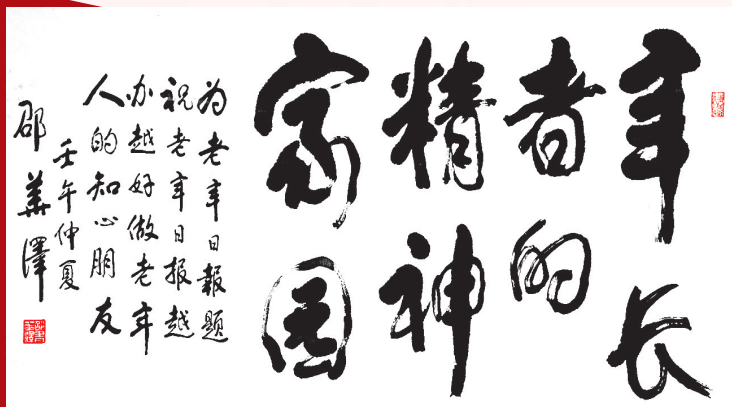 年长
者的
精神
家园
为老年日報题
祝老年日报越
办越好做老年
人的知心朋友
壬午仲夏
邵華澤